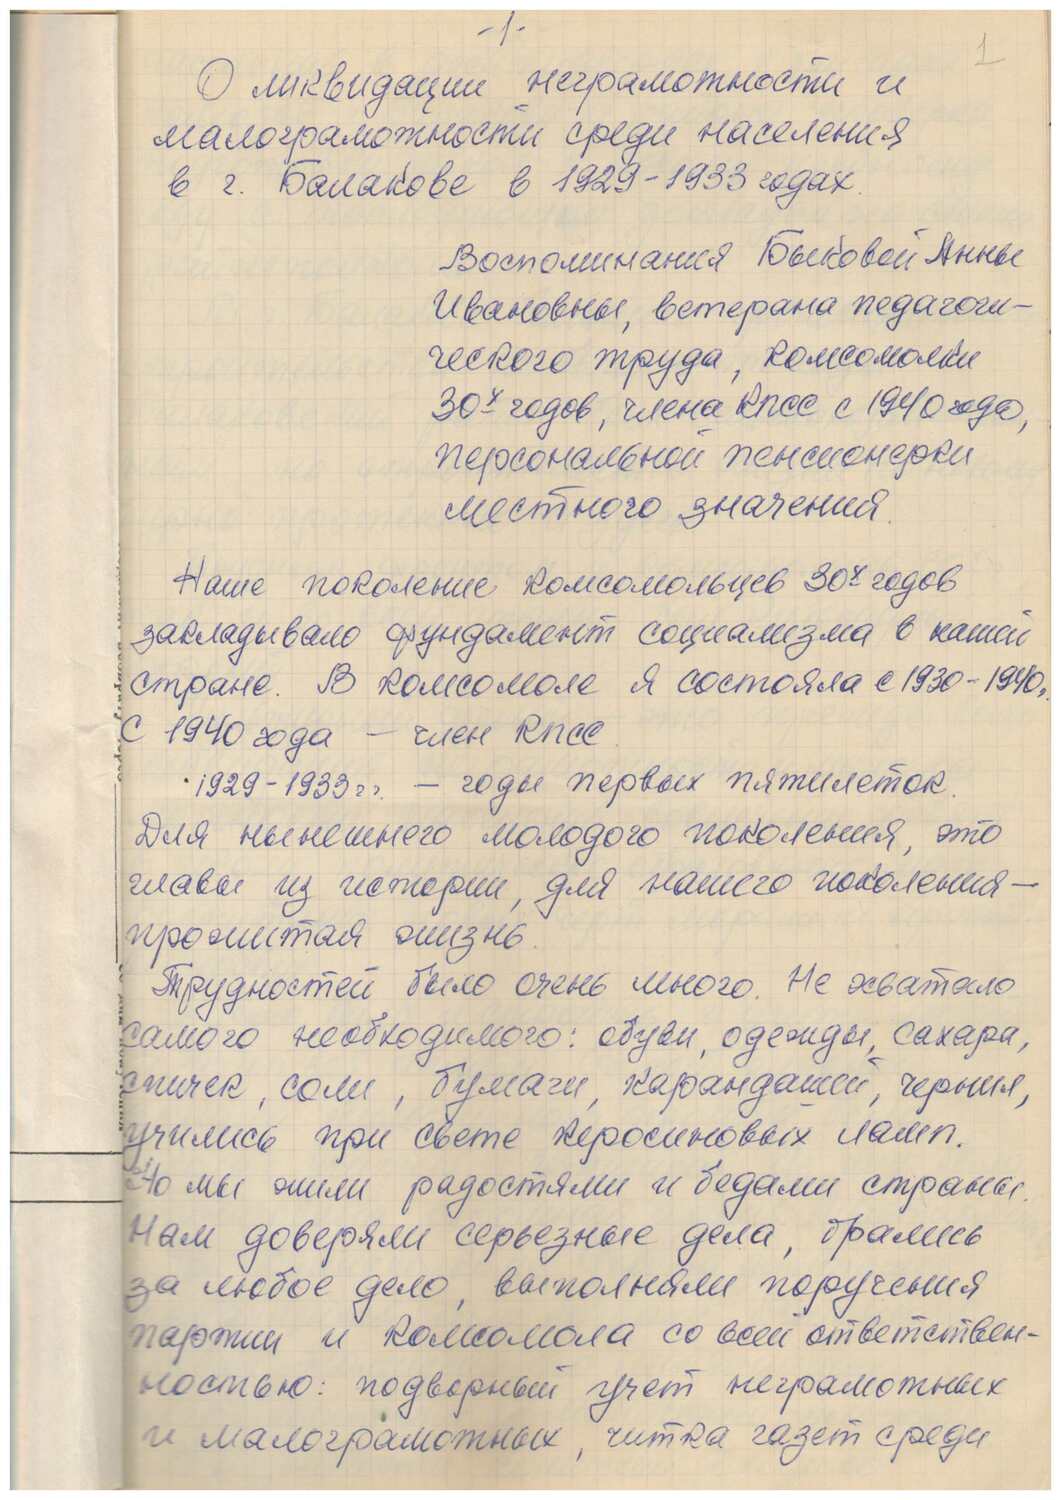 -1-
1
О ликвидации неграмотности и
малограмотности среди населения
в г. Балакове в 1929-1933 годах.
Воспоминания Быковой Анны
Ивановны, ветерана педагоги-
ческого труда, комсомолки
30х годов, члена КПСС с 1940 года,
персональной пенсионерки
местного значения.
Наше поколение комсомольцев 30х годов
закладывало фундамент социализма в нашей
стране. В комсомоле я состояла с 1930-1940г.
С 1940 года — член КПСС.
1929-1933 г.г. — годы первых пятилеток.
Для нынешнего молодого поколения, это
главы из истории, для нашего поколения —
прожитая жизнь.
Трудностей было очень много. Не хватало
самого необходимого: обуви, одежды, сахара,
спичек, соли, бумаги, карандашей, чернил,
учились при свете керосиновых ламп.
Но мы жили радостями и бедами страны.
Нам доверяли серьезные дела, брались
за любое дело, выполняли поручения
партии и комсомола со всей ответствен-
ностью: подворный учет неграмотных
и малограмотных, читка газет среди